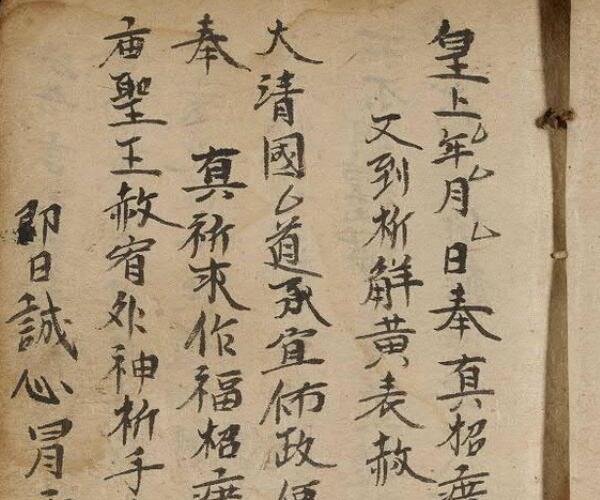 皇上乙年乙月乙日奉真招
又到析解黄表赦
大清國乙道承宣佈政
奉 真祈求作福招
庙聖王赦宥外神析手
即日誠心冒